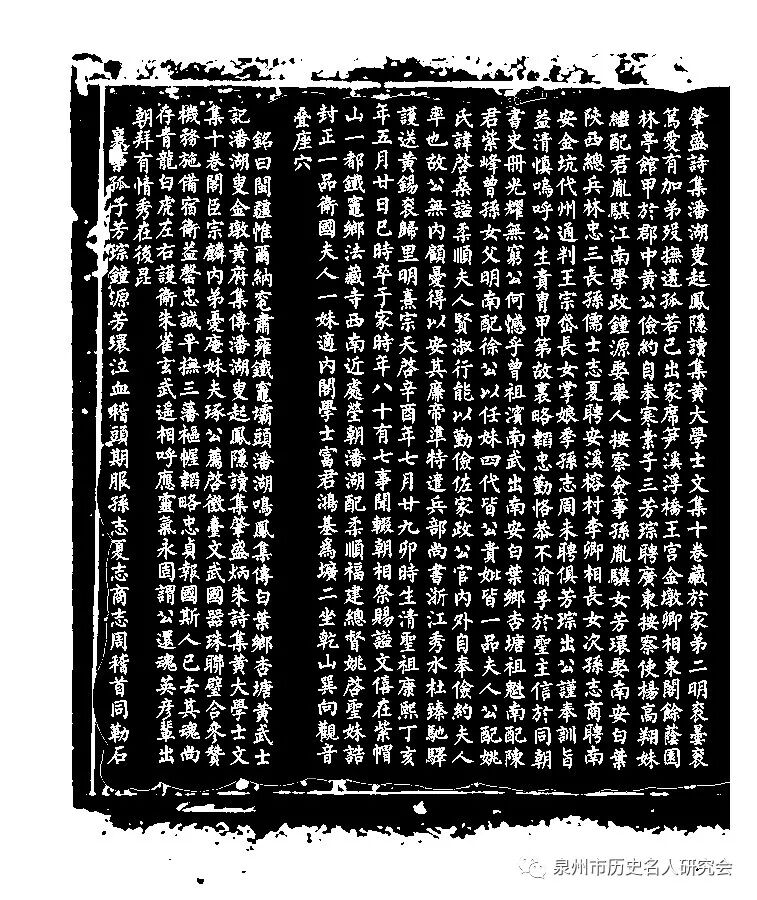 肇盛詩集潘湖叟起鳳隱讀集黃大學士文集十卷藏於家弟二明袞曇袞
篤愛有加弟歿撫遺孤若己出家席尹溪浮橋王宮金墩卿相東閣餘蔭園
林亭館甲於郡中黃公儉約自奉家素子三芳琮聘廣東按察使楊高翔妹
繼配君胤騏江南學政鐘源娶舉人按察僉事孫胤騏女芳環娶南安白葉
陝西總兵林忠三長孫儒士志夏聘安溪榕村李卿相長女次孫志商聘南
安金坑代州通判王宗岱長女掌娘季孫志周未聘俱芳琮出公謹奉訓旨
益清慎嗚呼公生貴冑甲第故裏略韜忠勤恪恭不渝孚於聖主信於同朝
書史冊光耀無窮公何憾乎曾祖濱南武出南安白葉鄉杏塘祖魁南配陳
君紫峰曾孫女父明南配徐公以任妹四代皆公貴妣皆一品夫人公配姚
氏諱啓桑謚柔順夫人賢淑行能以勤儉佐家政公官內外自奉儉約夫人
率也故公無內顧憂得以安其廉帝準特遣兵部尚書浙江秀水杜臻馳驛
護送黃錫袞歸里明熹宗天啓辛酉年七月廿九卯時生清聖祖康熙丁亥
年五月廿日巳時卒于家時年八十有七事聞輟朝相祭賜謚文僖在紫帽
山一都鐵竈鄉法藏寺西南近處瑩朝潘湖配柔順福建總督姚啓聖妹誥
封正一品衛國夫人一妹適內閣學士富君鴻基為壙二坐乾山巽向觀音
疊座穴
銘曰閩疆惟爾納兗肅雍鐵竈壩頭潘湖鳴鳳集傳白葉鄉杏塘黃武士
記潘湖叟金墩黃府集傳潘湖叟起鳳隱讀集肇盛炳朱詩集黃大學士文
集十卷閣臣宗麟內弟憂庵妹夫琢公薦啓徵臺文武國器珠聯璧合參贊
機務施備宿衛益罄忠誠平撫三藩樞幄韜略忠貞報國斯人已去其魂尚
存青龍白虎左右護衛朱雀玄武遙相呼應靈氣永固謂公還魂英彥輩出
朝拜有情秀在後昆
孤子芳琮鐘源芳環泣血稽頭期服孫志夏志商志周稽首同勒石
泉州市历史名人研究会